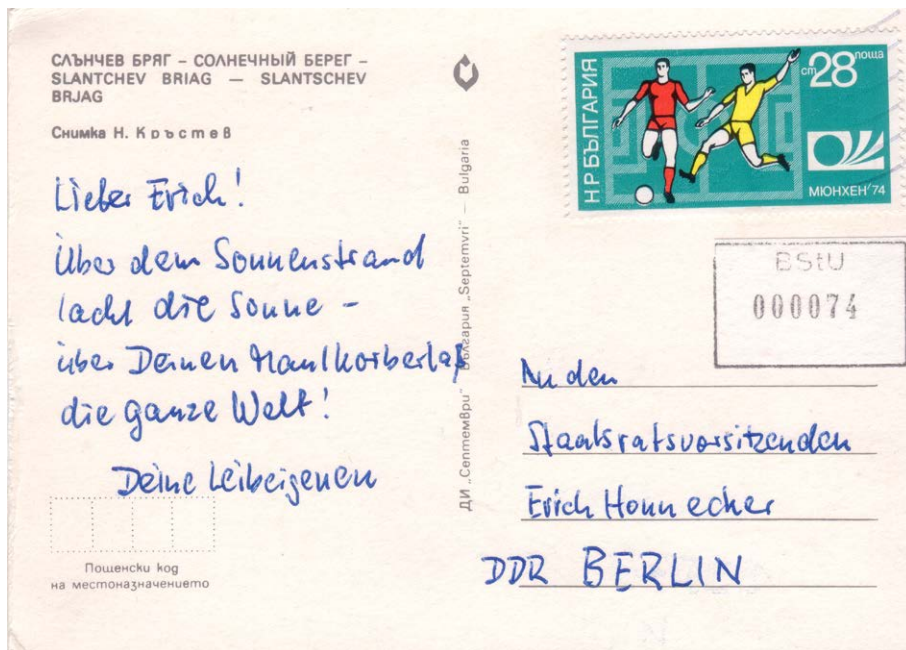 СЛЪНЧЕВ БРЯГ – СОЛНЕЧНЫЙ БЕРЕГ –
SLANTCHEV BRIAG — SLANTSCHEV
BRJAG
Снимка Н. Кръстев
Lieber Erich!
Über dem Sonnenstrand
lacht die Sonne –
über Deinen Maulkorberlaß
die ganze Welt!
Deine Leibeigenen
Пощенски код
на местоназначението
ДИ „Септември“ България „Septemvri“ — Bulgaria
НР БЪЛГАРИЯ
поща
ст 28
МЮНХЕН'74
BStU
000074
An den
Staatsratsvorsitzenden
Erich Honnecker
DDR BERLIN